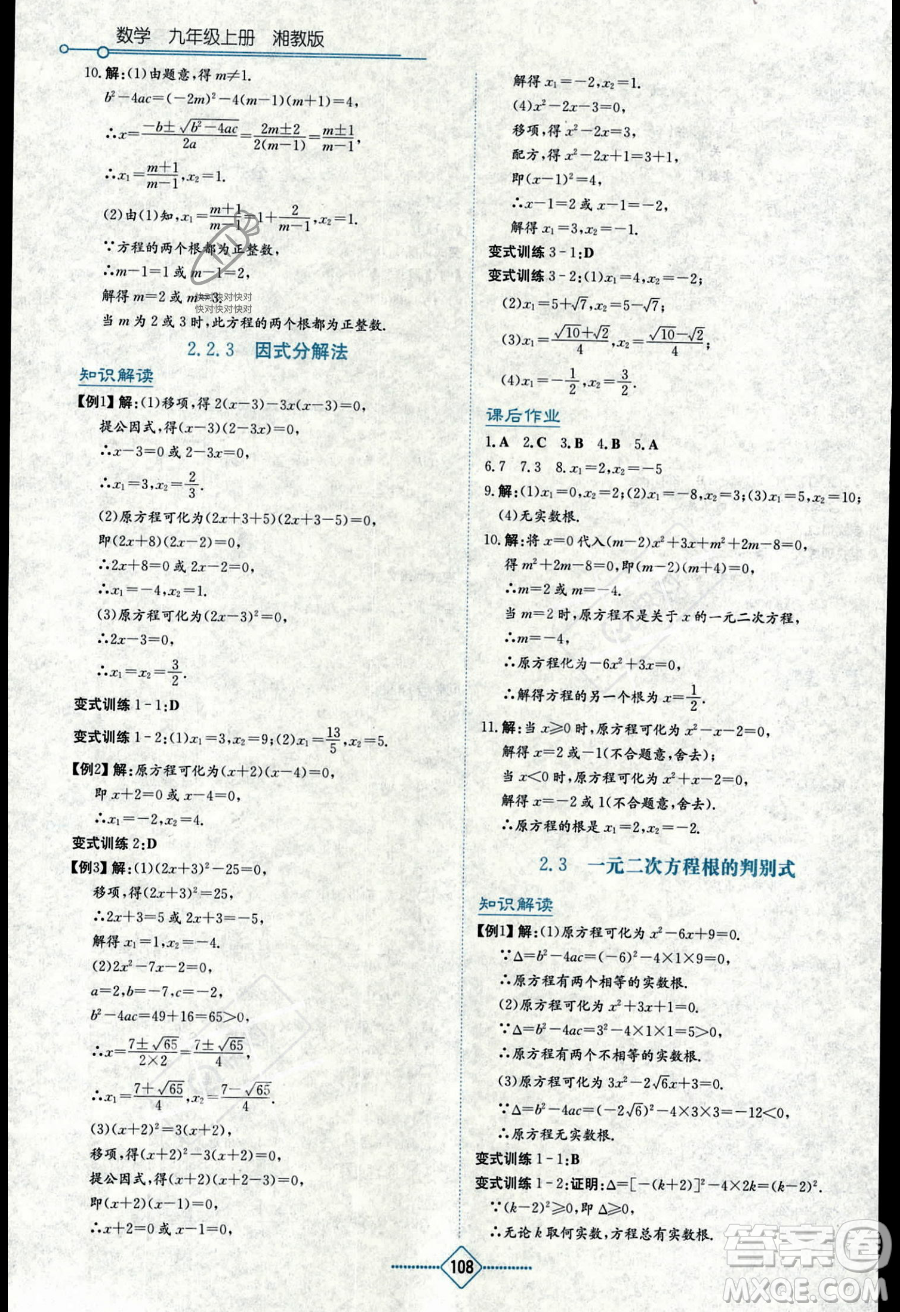 数学 九年级上册 湘教版
10. 解:(1)由题意,得 m≠1.
b²-4ac=(-2m)²-4(m-1)(m+1)=4,
∴x=(-b±√(b²-4ac))/2a=(2m±2)/(2(m-1))=(m±1)/(m-1),
∴x₁=(m+1)/(m-1),x₂=1.
(2)由(1)知,x₁=(m+1)/(m-1)=1+2/(m-1).
∵方程的两个根都为正整数,
∴m-1=1 或 m-1=2,
解得 m=2 或 m=3.
当 m 为 2 或 3 时,此方程的两个根都为正整数.
快对快对快对
快对快对快对
2.2.3 因式分解法
知识解读
【例1】解:(1)移项,得 2(x-3)-3x(x-3)=0,
提公因式,得(x-3)(2-3x)=0,
∴x-3=0 或 2-3x=0,
∴x₁=3,x₂=2/3.
(2)原方程可化为(2x+3+5)(2x+3-5)=0,
即(2x+8)(2x-2)=0,
∴2x+8=0 或 2x-2=0,
∴x₁=-4,x₂=1.
(3)原方程可化为(2x-3)²=0,
∴2x-3=0,
∴x₁=x₂=3/2.
变式训练 1-1:D
变式训练 1-2:(1)x₁=3,x₂=9;(2)x₁=13/5,x₂=5.
【例2】解:原方程可化为(x+2)(x-4)=0,
即 x+2=0 或 x-4=0,
∴x₁=-2,x₂=4.
变式训练 2:D
【例3】解:(1)(2x+3)²-25=0,
移项,得(2x+3)²=25,
∴2x+3=5 或 2x+3=-5,
解得 x₁=1,x₂=-4.
(2)2x²-7x-2=0,
a=2,b=-7,c=-2,
b²-4ac=49+16=65>0,
∴x=(7±√65)/(2×2)=(7±√65)/4,
∴x₁=(7+√65)/4,x₂=(7-√65)/4.
(3)(x+2)²=3(x+2),
移项,得(x+2)²-3(x+2)=0,
提公因式,得(x+2)(x+2-3)=0,
即(x+2)(x-1)=0,
∴x+2=0 或 x-1=0,
解得 x₁=-2,x₂=1.
(4)x²-2x-3=0,
移项,得 x²-2x=3,
配方,得 x²-2x+1=3+1,
即(x-1)²=4,
∴x-1=2 或 x-1=-2,
解得 x₁=3,x₂=-1.
变式训练 3-1:D
变式训练 3-2:(1)x₁=4,x₂=-2;
(2)x₁=5+√7,x₂=5-√7;
(3)x₁=(√10+√2)/4,x₂=(√10-√2)/4;
(4)x₁=-1/2,x₂=1/2.
课后作业
1. A 2. C 3. B 4. B 5. A
6. 7 7. 3 8. x₁=2,x₂=-5
9. 解:(1)x₁=0,x₂=2;(2)x₁=-8,x₂=3;(3)x₁=-2,x₂=10;
(4)无实数根.
10. 解:将 x=0 代入(m-2)x²+3x+m²+2m-8=0,
得 m²+2m-8=0,即(m-2)(m+4)=0,
∴m=2 或 m=-4.
当 m=2 时,原方程不是关于 x 的一元二次方程,
∴m=-4,
∴原方程化为-6x²+3x=0,
∴解得方程的另一个根为 x=1/2.
11. 解:当 x≥0 时,原方程可化为 x²-x-2=0,
解得 x=2 或-1(不合题意,舍去);
当 x<0 时,原方程可化为 x²+x-2=0,
解得 x=-2 或 1(不合题意,舍去).
∴原方程的根是 x=2 或 x=-2.
2.3 一元二次方程根的判别式
知识解读
【例1】解:(1)原方程可化为 x²-6x+9=0.
∵Δ=b²-4ac=(-6)²-4×1×9=0,
∴原方程有两个相等的实数根.
(2)原方程可化为 x²+3x+1=0.
∵Δ=b²-4ac=3²-4×1×1=5>0,
∴原方程有两个不相等的实数根.
(3)原方程可化为 3x²-2√6x+3=0.
∵Δ=b²-4ac=(-2√6)²-4×3×3=-12<0,
∴原方程无实数根.
变式训练 1-1:B
变式训练 1-2:证明:Δ=[-(k+2)]²-4×2k=(k-2)².
∵(k-2)²≥0,即 Δ≥0,
∴无论 k 取何实数,方程总有实数根.
108
答案圈
MXQE.COM